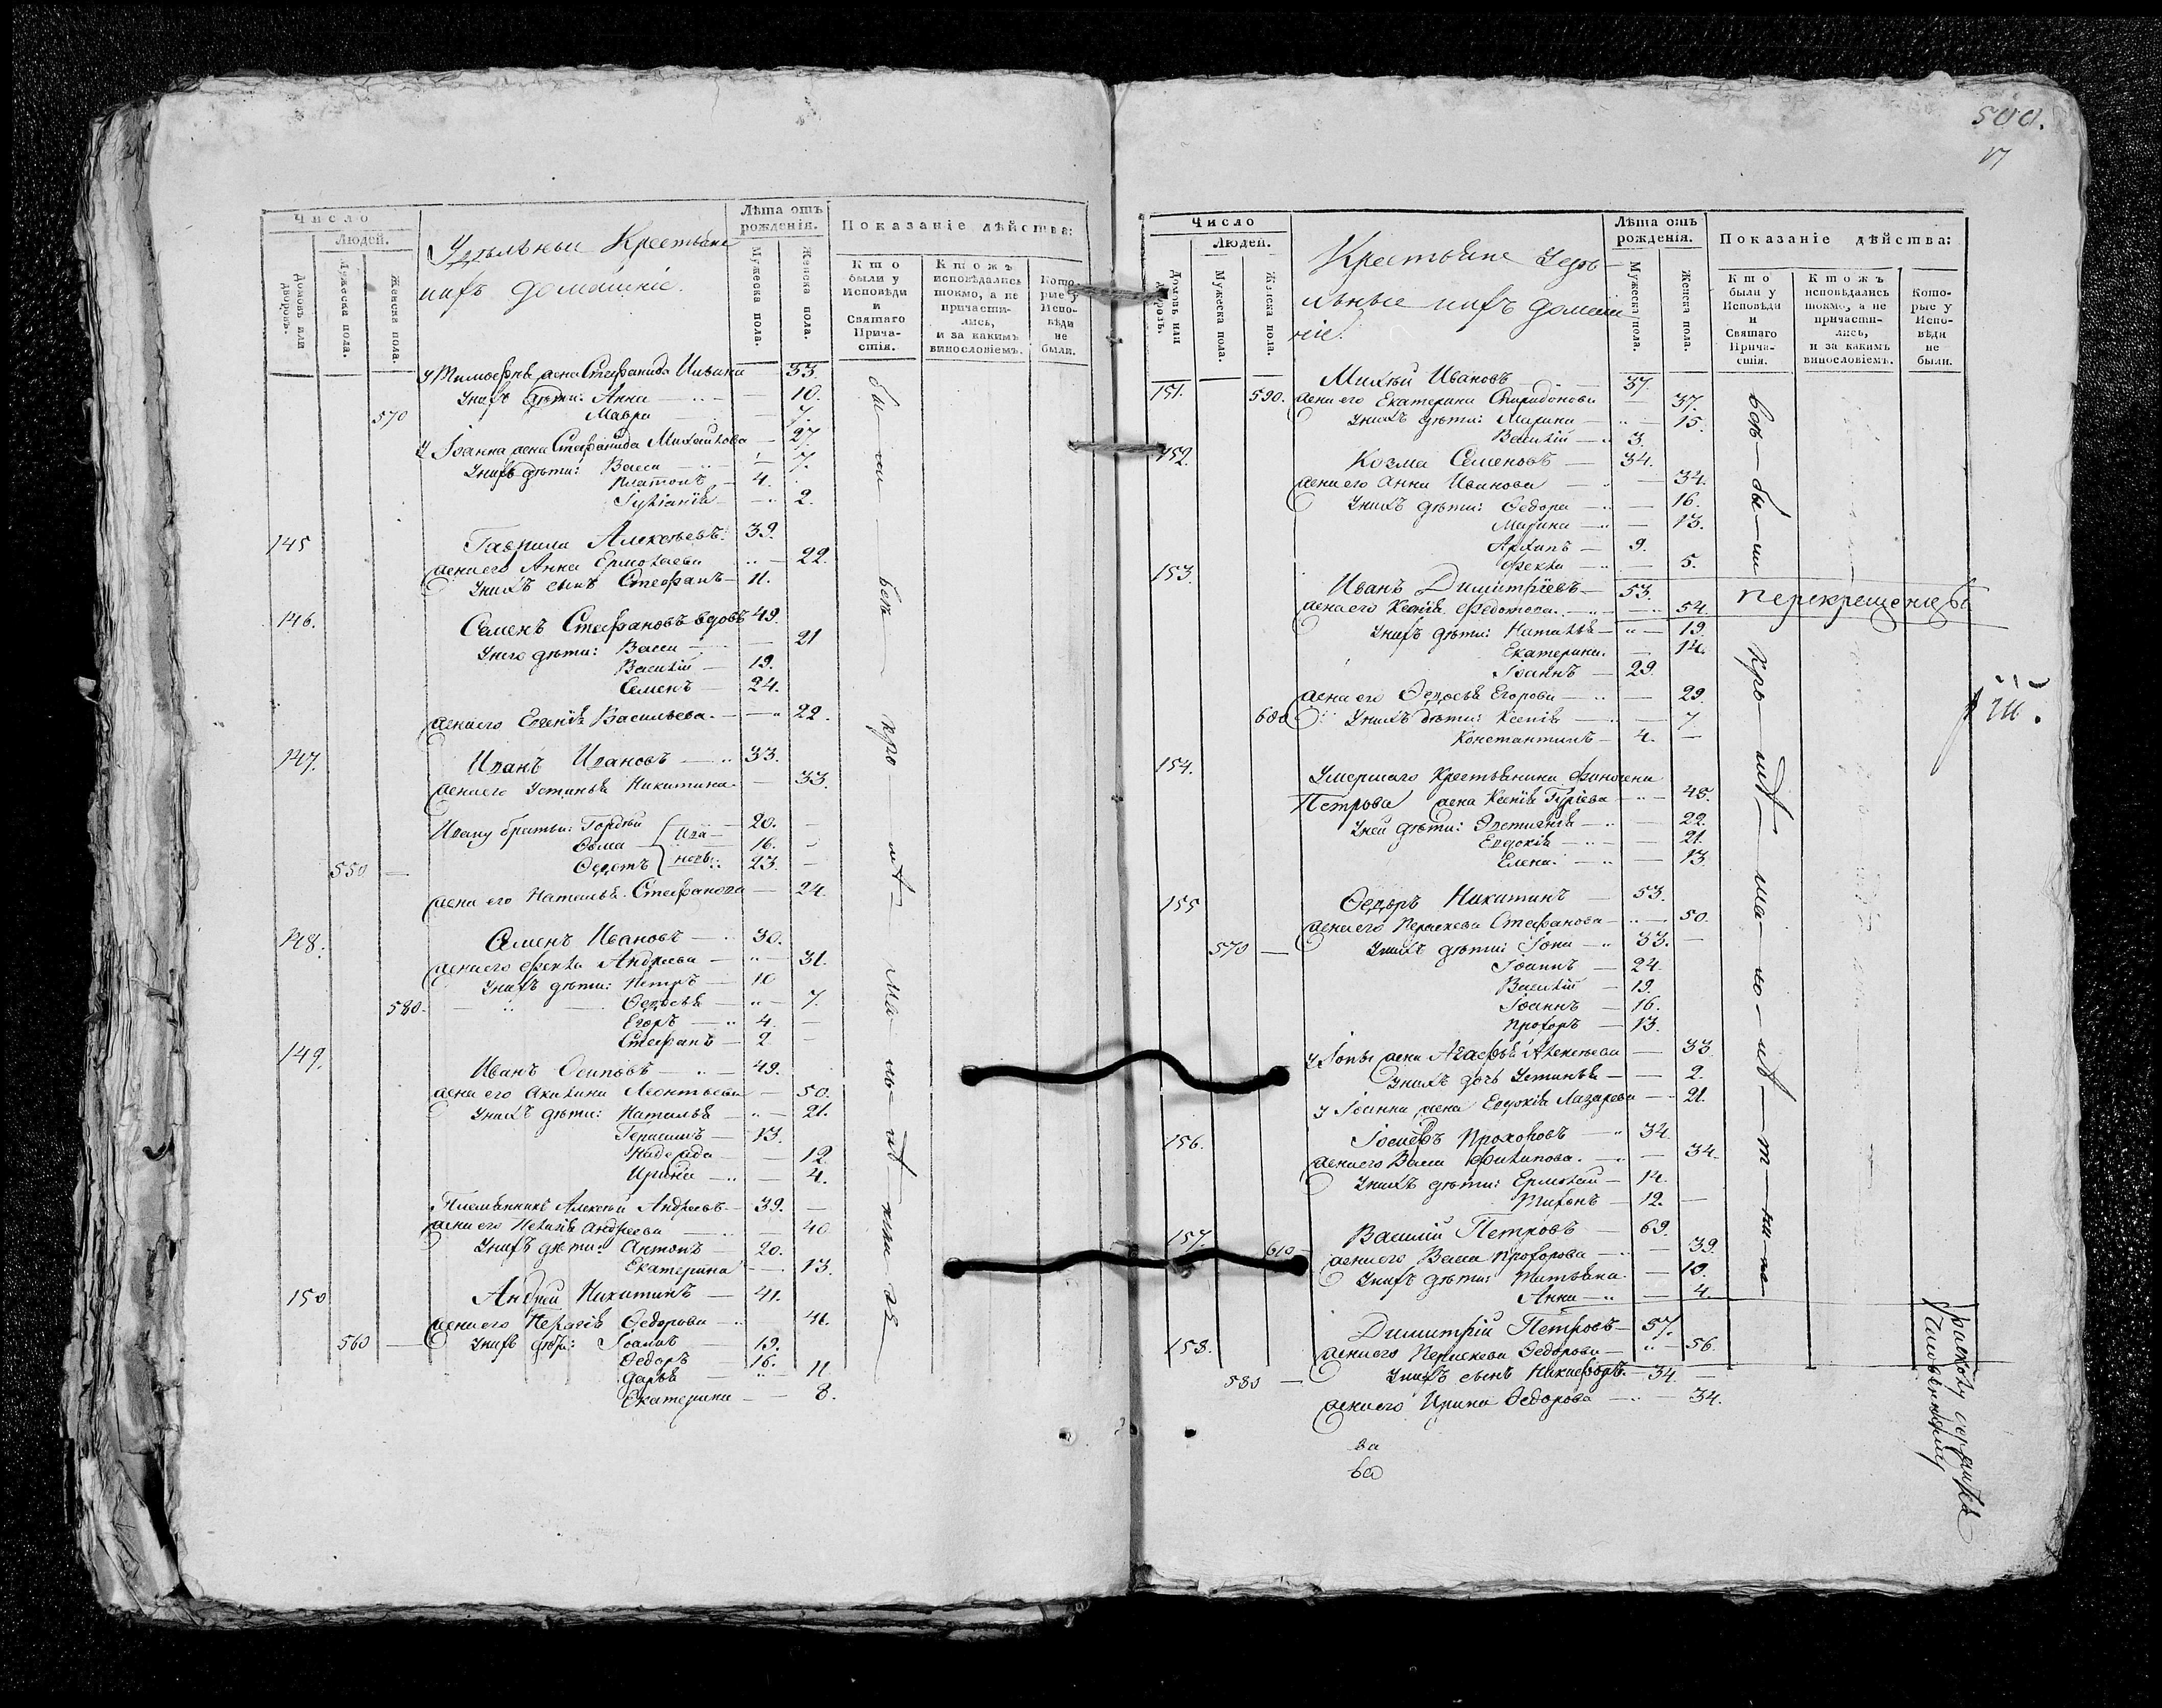 Число
Людей.
Домовъ или дворовъ.
Мужеска пола.
Женска пола.
Удѣльныи Крестьяне
ихъ домашніе.
Лѣта отъ рожденія.
Мужеска пола.
Женска пола.
Показаніе дѣйства:
Кто были у Исповѣди и Святаго Причастія.
Ктожъ исповѣдались токмо, а не причастились, и за какимъ винословіемъ.
Которые у Исповѣди не были.
У Тимофея жена Стефанида 33.
У нихъ дѣти: Анна — 10.
570 Мавра — 7.
У Іоанна жена Стефанида Михайлова — 27.
У нихъ дѣти: Васса — 7.
Платонъ — 4.
Іуліанія — 2.
145 Гаврила Алексѣевъ 39.
жена его Анна Ермолаева — 22.
У нихъ сынъ Стефанъ — 11.
146. Семенъ Стефановъ вдовъ 49.
У него дѣти: Васса — 21
Василій — 19.
Семенъ — 24.
жена его Евгенія Васильева — 22.
147. Иванъ Ивановъ — 33.
жена его Устинья Никитина — 33.
Ивану братья: Гордѣй — 20. —
Ѳома — Ива — 16.
550 — Ѳедотъ новы: 23. —
жена его Наталья Стефанова — 24.
148. Семенъ Ивановъ — 30.
жена его Фекла Андреева — 31.
У нихъ дѣти: Петръ — 10
580. Ѳедосья — 7.
Егоръ — 4. —
Стефанъ — 2 —
149. Иванъ Осиповъ — 49.
жена его Акилина Леонтьева — 50.
У нихъ дѣти: Наталья — 21.
Герасимъ — 13.
Надежда — 12.
Ирина — 4.
Племянникъ Алексѣй Андреевъ — 39. —
жена его Пелагія Андреева — 40
У нихъ дѣти: Антонъ — 20.
Екатерина — 13.
150 Андрей Никитинъ — 41.
жена его Пелагія Ѳедорова — 41.
560 — У нихъ дѣти: Іоаннъ — 19.
Ѳедоръ — 16.
Дарья — 11
Екатерина — 8.
500.
17
Число
Людей.
Домовъ или дворовъ.
Мужеска пола.
Женска пола.
Крестьяне Удѣ-
льные ихъ домаш
ніе.
Лѣта отъ рожденія.
Мужеска пола.
Женска пола.
Показаніе дѣйства:
Кто были у Исповѣди и Святаго Причастія.
Ктожъ исповѣдались токмо, а не причастились, и за какимъ винословіемъ.
Которые у Исповѣди не были.
151. Михѣй Ивановъ 37.
590. жена его Екатерина Спиридонова — 37.
У нихъ дѣти: Марина — 15.
Василій — 3.
152. Козма Семеновъ — 34.
жена его Анна Иванова — 34.
У нихъ дѣти: Ѳедора — 16.
Марина — 13.
Архипъ — 9.
Фекла — 5.
153. Иванъ Димитріевъ — 53.
жена его Ксенія Федотова — 54.
У нихъ дѣти: Наталья — 19.
Екатерина. — 14.
Іоаннъ — 29.
жена его Ѳедосья Егорова — 29.
600 У нихъ дѣти: Ксенія — 7
Константинъ — 4. —
154. Умершаго Крестьянина
Петрова жена Ксенія Гуріева — 45.
У ней дѣти: — 22.
Евдокія — 21.
Елена — 13.
155 Ѳедоръ Никитинъ — 53.
жена его Параскева Стефанова — 50.
570 — У нихъ дѣти: Іона — 33. —
Іоаннъ — 24.
Василій — 19.
Іоаннъ — 16.
Прохоръ — 13.
У Іоны жена Агафья Алексѣева — 33
У нихъ дочь Устинья — 2.
У Іоанна жена Евдокія Лазарева — 21.
156. Іосифъ Прохоровъ — 34.
жена его Васса Филипова. — 34.
У нихъ дѣти: Ермолай — 14.
Миронъ — 12. —
157. Василій Петровъ — 69.
610 — жена его Васса Прохорова — 39.
У нихъ дѣти: Татьяна — 10.
Анна — 4.
158. Димитрій Петровъ — 57.
жена его Параскева Ѳедорова — 56.
580 — У нихъ сынъ Никифоръ — 34 —
жена его Ирина Ѳедорова — 34.
ва
ва